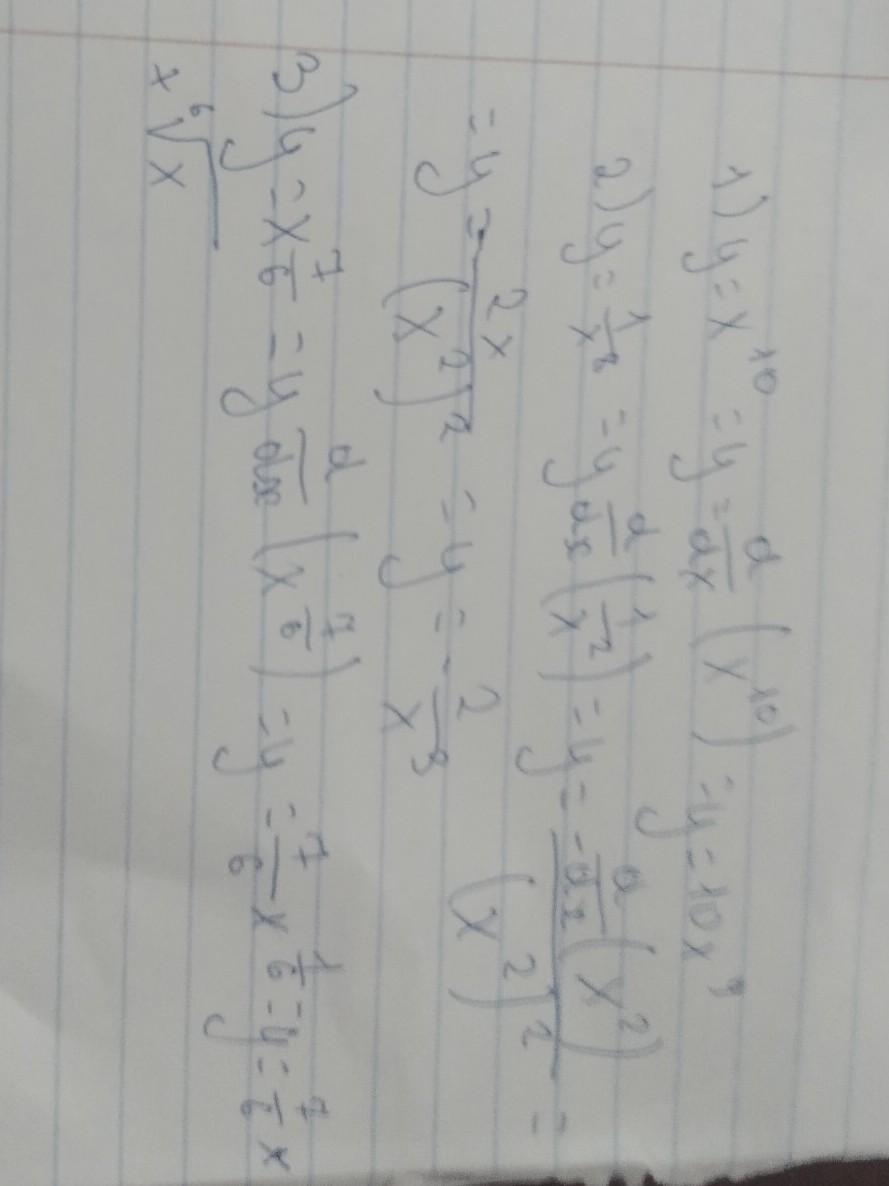 1) y = x^10 = y = d/dx (x^10) = y = 10x^9
2) y = 1/x^2 = y d/dx (1/x^2) = y = - d/dx (x^2) / (x^2)^2 =
= y = - 2x / (x^2)^2 = y = - 2/x^3
3) y = x^7/6 = y d/dx (x^7/6) = y = 7/6 x^1/6 = y = 7/6 x
x ⁶√x